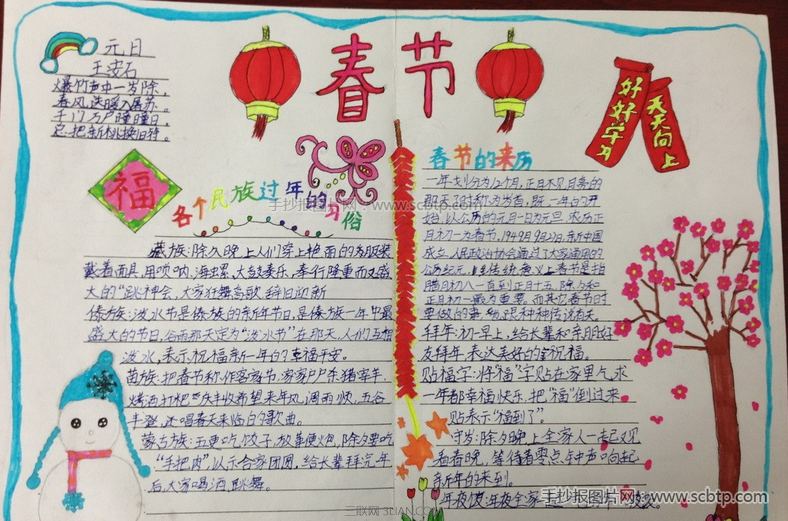 元日
王安石
爆竹声中一岁除，
春风送暖入屠苏。
千门万户曈曈日，
总把新桃换旧符。
春节
好好学习
天天向上
福
各个民族过年的习俗
藏族：除夕晚上人们穿上艳丽的
戴着面具，用唢呐，海螺，大鼓奏乐，举行隆重而又盛
大的“跳神会，大家狂舞高歌辞旧迎新
傣族：泼水节是傣族的新年节日，是傣族一年中最
盛大的节日，那天定为“泼水节”在那天，人们互相
泼水，表示祝福新一年的幸福平安。
苗族：把春节称作客家节，家家户户杀猪宰羊
烤酒打粑庆丰收希望来年风调雨顺，五谷
丰登，还唱春天来临的歌曲。
蒙古族：五更吃饺子，放鞭炮，除夕要吃
“手把肉”，以示合家团圆，给长辈拜完年
后，大家喝酒，跳舞。
春节的来历
一年划分为12个月，正月不见月亮的
那天子时称为为首，既一年的开
始，以公历的元月一日为元旦，农历正
月初一为春节，1949月9月2日，新中国
成立，人民政治协会通过了大家通用的
公历纪元，传统意义上春节是指
腊月初八一直到正月十五，除夕和
正月初一最为重要，而其它春节时
要做的事物，跟种种传说有关。
拜年：初一早上，给长辈和亲朋好
友拜年，表达美好的祝福。
贴福字：将“福”字贴在家里乞求
一年都幸福快乐，把“福”倒过来
贴表示“福到了”。
守岁：除夕晚上全家人一起
看春晚，等待着零点钟声响起
新年的来到。
年夜饭：年夜全家
手抄报图片网 www.scbtp.com
手抄报图片网 www.scbtp.com
三联网 3LIAN.COM